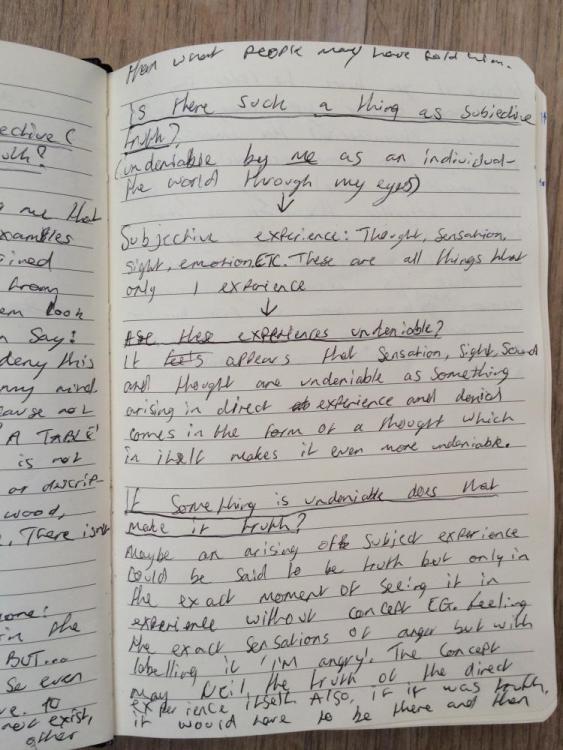 ective (
uth?
g me that
xamples
ained
from
em look
n say!
deny this
my mind.
cause not
'A TABLE'
is not
or descrip-
wood,
. There isn't
one!
in the
BUT...
se even
ve. to
not exist,
other
then what people may have told him.
Is there such a thing as subjective
truth?
(undeniable by me as an individual-
the world through my eyes)
↓
Subjective experience: Thought, Sensation,
sight, emotion ETC. These are all things that
only I experience
↓
Are these experiences undeniable?
It appears that Sensation, Sight, Sound
and thought are undeniable as something
arising in direct experience and denial
comes in the form of a thought which
in itself makes it even more undeniable.
If something is undeniable does that
make it truth?
Maybe an arising of subject experience
could be said to be truth but only in
the exact moment of seeing it in
experience without concept EG. feeling
the exact sensations of anger but with
labelling it 'I'm angry'. The concept
may veil the truth of the direct
experience itself. Also, if it was truth,
it would have to be there and then